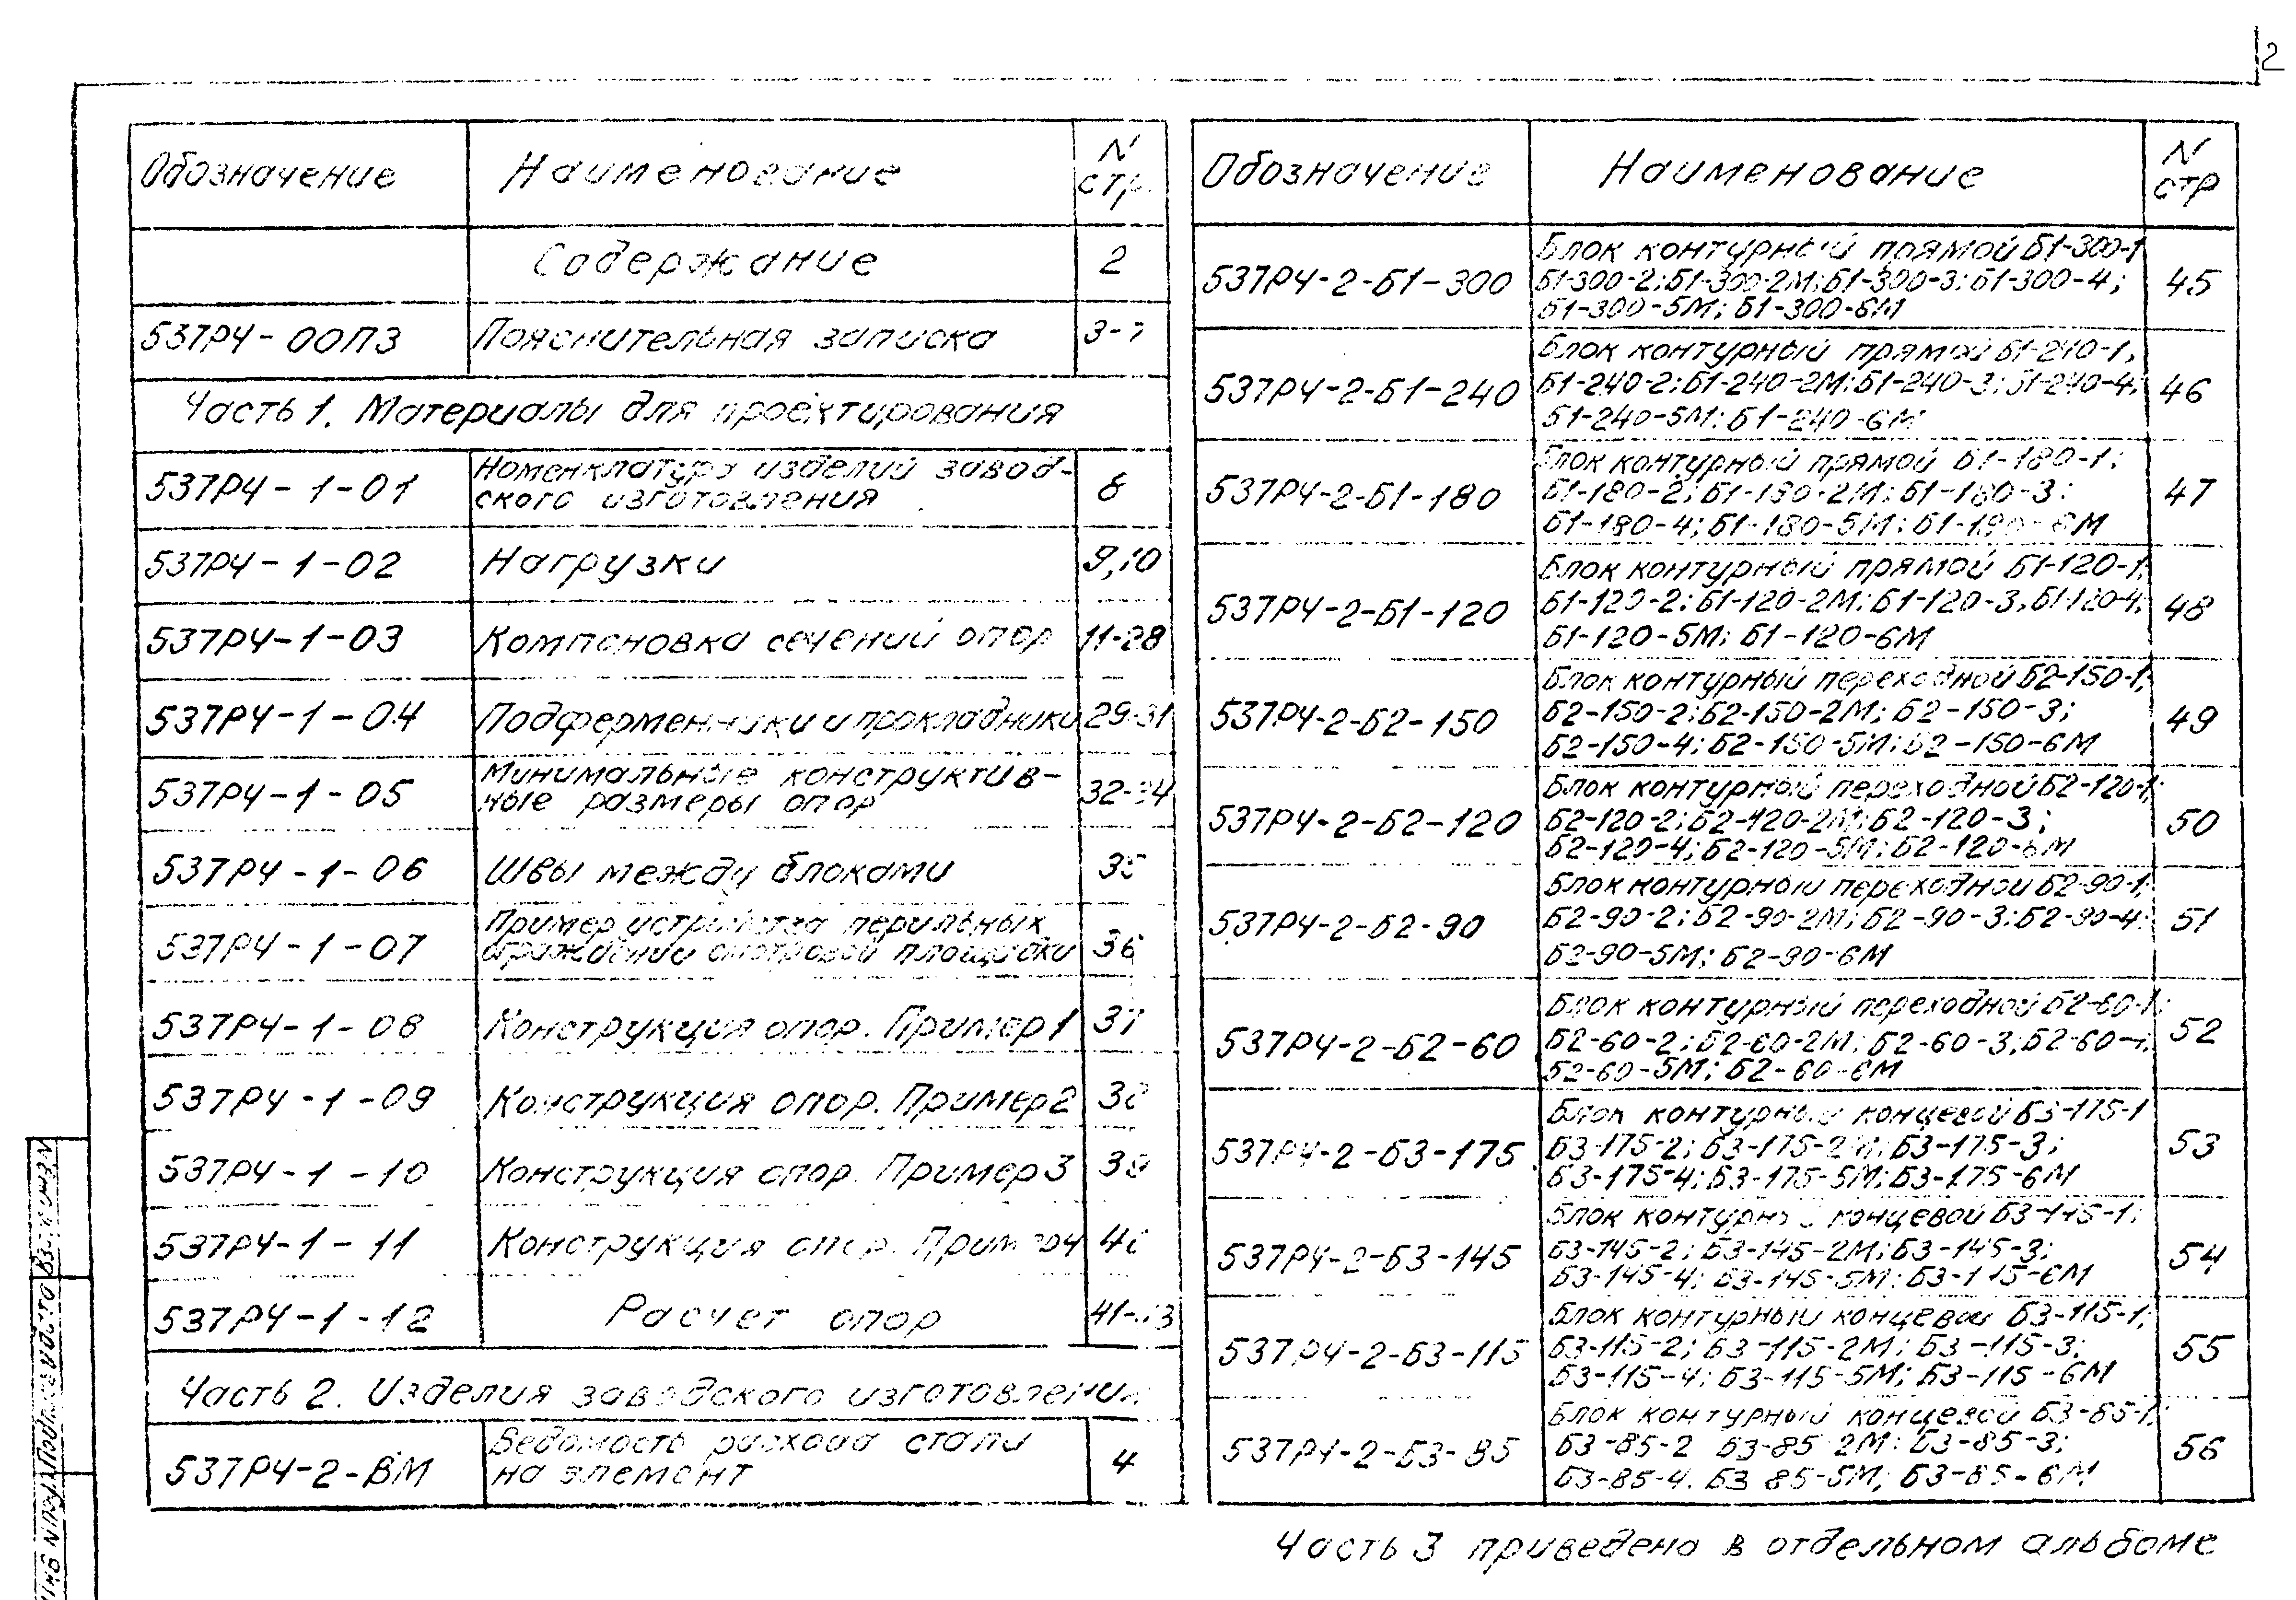 2
Обозначение Наименование N стр.
Содержание 2
537РЧ-00ПЗ Пояснительная записка 3-7
Часть 1. Материалы для проектирования
537РЧ-1-01 Номенклатура изделий завод-
ского изготовления 8
537РЧ-1-02 Нагрузки 9,10
537РЧ-1-03 Компоновка сечений опор 11-28
537РЧ-1-04 Подферменники и прокладники 29-31
537РЧ-1-05 Минимальные конструктив-
ные размеры опор 32-34
537РЧ-1-06 Швы между блоками 35
537РЧ-1-07 Пример устройства перильных
ограждений смотровой площадки 36
537РЧ-1-08 Конструкция опор. Пример 1 37
537РЧ-1-09 Конструкция опор. Пример 2 38
537РЧ-1-10 Конструкция опор. Пример 3 39
537РЧ-1-11 Конструкция опор. Пример 4 40
537РЧ-1-12 Расчет опор 41-43
Часть 2. Изделия заводского изготовления
537РЧ-2-ВМ Ведомость расхода стали
на элемент 4
Обозначение Наименование N стр
537РЧ-2-Б1-300 Блок контурный прямой Б1-300-1
Б1-300-2; Б1-300-2М; Б1-300-3; Б1-300-4;
Б1-300-5М; Б1-300-6М 45
537РЧ-2-Б1-240 Блок контурный прямой Б1-240-1,
Б1-240-2; Б1-240-2М; Б1-240-3; Б1-240-4;
Б1-240-5М; Б1-240-6М 46
537РЧ-2-Б1-180 Блок контурный прямой Б1-180-1;
Б1-180-2; Б1-180-2М; Б1-180-3;
Б1-180-4; Б1-180-5М; Б1-180-6М 47
537РЧ-2-Б1-120 Блок контурный прямой Б1-120-1;
Б1-120-2; Б1-120-2М; Б1-120-3, Б1-120-4;
Б1-120-5М; Б1-120-6М 48
537РЧ-2-Б2-150 Блок контурный переходной Б2-150-1;
Б2-150-2; Б2-150-2М; Б2-150-3;
Б2-150-4; Б2-150-5М; Б2-150-6М 49
537РЧ-2-Б2-120 Блок контурный переходной Б2-120-1;
Б2-120-2; Б2-120-2М; Б2-120-3;
Б2-120-4; Б2-120-5М; Б2-120-6М 50
537РЧ-2-Б2-90 Блок контурный переходной Б2-90-1;
Б2-90-2; Б2-90-2М; Б2-90-3; Б2-90-4;
Б2-90-5М; Б2-90-6М 51
537РЧ-2-Б2-60 Блок контурный переходной Б2-60-1;
Б2-60-2; Б2-60-2М; Б2-60-3; Б2-60-4;
Б2-60-5М; Б2-60-6М 52
537РЧ-2-Б3-175 Блок контурный концевой Б3-175-1
Б3-175-2; Б3-175-2М; Б3-175-3;
Б3-175-4; Б3-175-5М; Б3-175-6М 53
537РЧ-2-Б3-145 Блок контурный концевой Б3-145-1;
Б3-145-2; Б3-145-2М; Б3-145-3;
Б3-145-4; Б3-145-5М; Б3-145-6М 54
537РЧ-2-Б3-115 Блок контурный концевой Б3-115-1;
Б3-115-2; Б3-115-2М; Б3-115-3;
Б3-115-4; Б3-115-5М; Б3-115-6М 55
537РЧ-2-Б3-85 Блок контурный концевой Б3-85-1;
Б3-85-2 Б3-85-2М; Б3-85-3;
Б3-85-4. Б3 85-5М; Б3-85-6М 56
Часть 3 приведена в отдельном альбоме